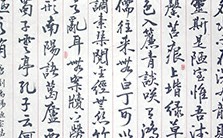 馨苔痕上堦綠草
色入簾青談笑
儒往來無白丁可以
調素琴閱金經無絲
之亂耳無案牘之勞
南陽諸葛廬西
蜀子雲亭孔子云何
唐劉禹錫陋室